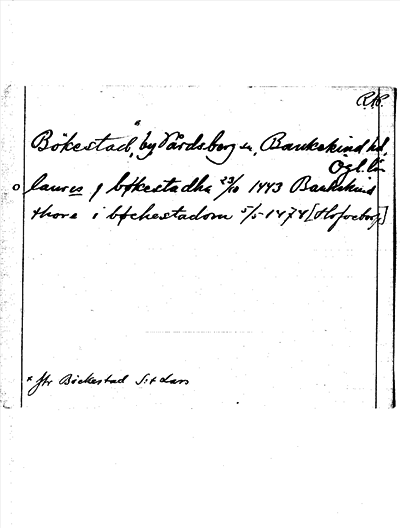 R.A.P.
Bökestad,* by Vårdsberg sn, Bankekind hd,
Ögl. län
laures j bökestadha 23/10 1443 Bankekind
thore i böchestadom 5/5 1474 [Hofoeborg]
* Jfr Böckestad S:t Lars